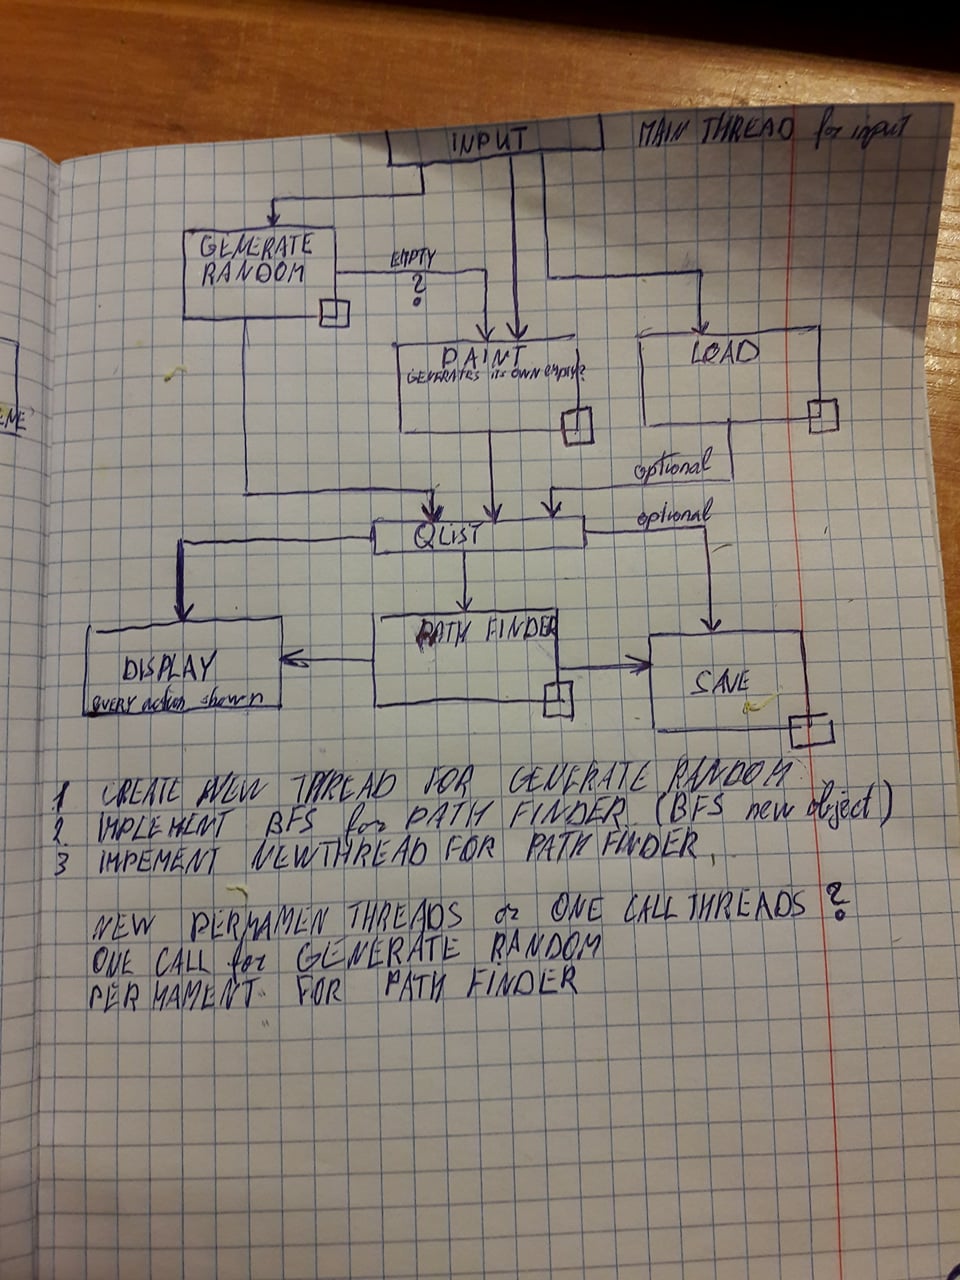 INPUT
MAIN THREAD for input
GENERATE
RANDOM
EMPTY
?
PAINT
GENERATES its OWN empty?
LOAD
optional
optional
QLIST
PATH FINDER
DISPLAY
EVERY action shown
SAVE
1 CREATE NEW THREAD FOR GENERATE RANDOM
2 IMPLEMENT BFS for PATH FINDER (BFS new object)
3 IMPEMENT NEW THREAD FOR PATH FINDER.
NEW PERMAMEN THREADS or ONE CALL THREADS ?
ONE CALL for GENERATE RANDOM
PERMAMENT FOR PATH FINDER